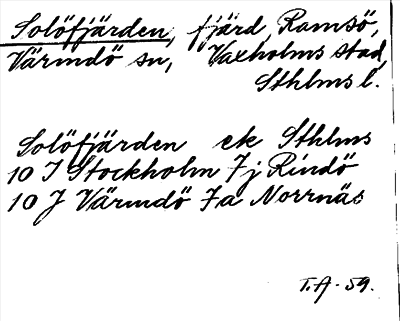 Solöfjärden, fjärd, Ramsö,
Värmdö sn, Vaxholms stad,
Sthlms l.
Solöfjärden ek Sthlms
10 I Stockholm 7j Rindö
10 J Värmdö 7a Norrnäs
T.A. 59.